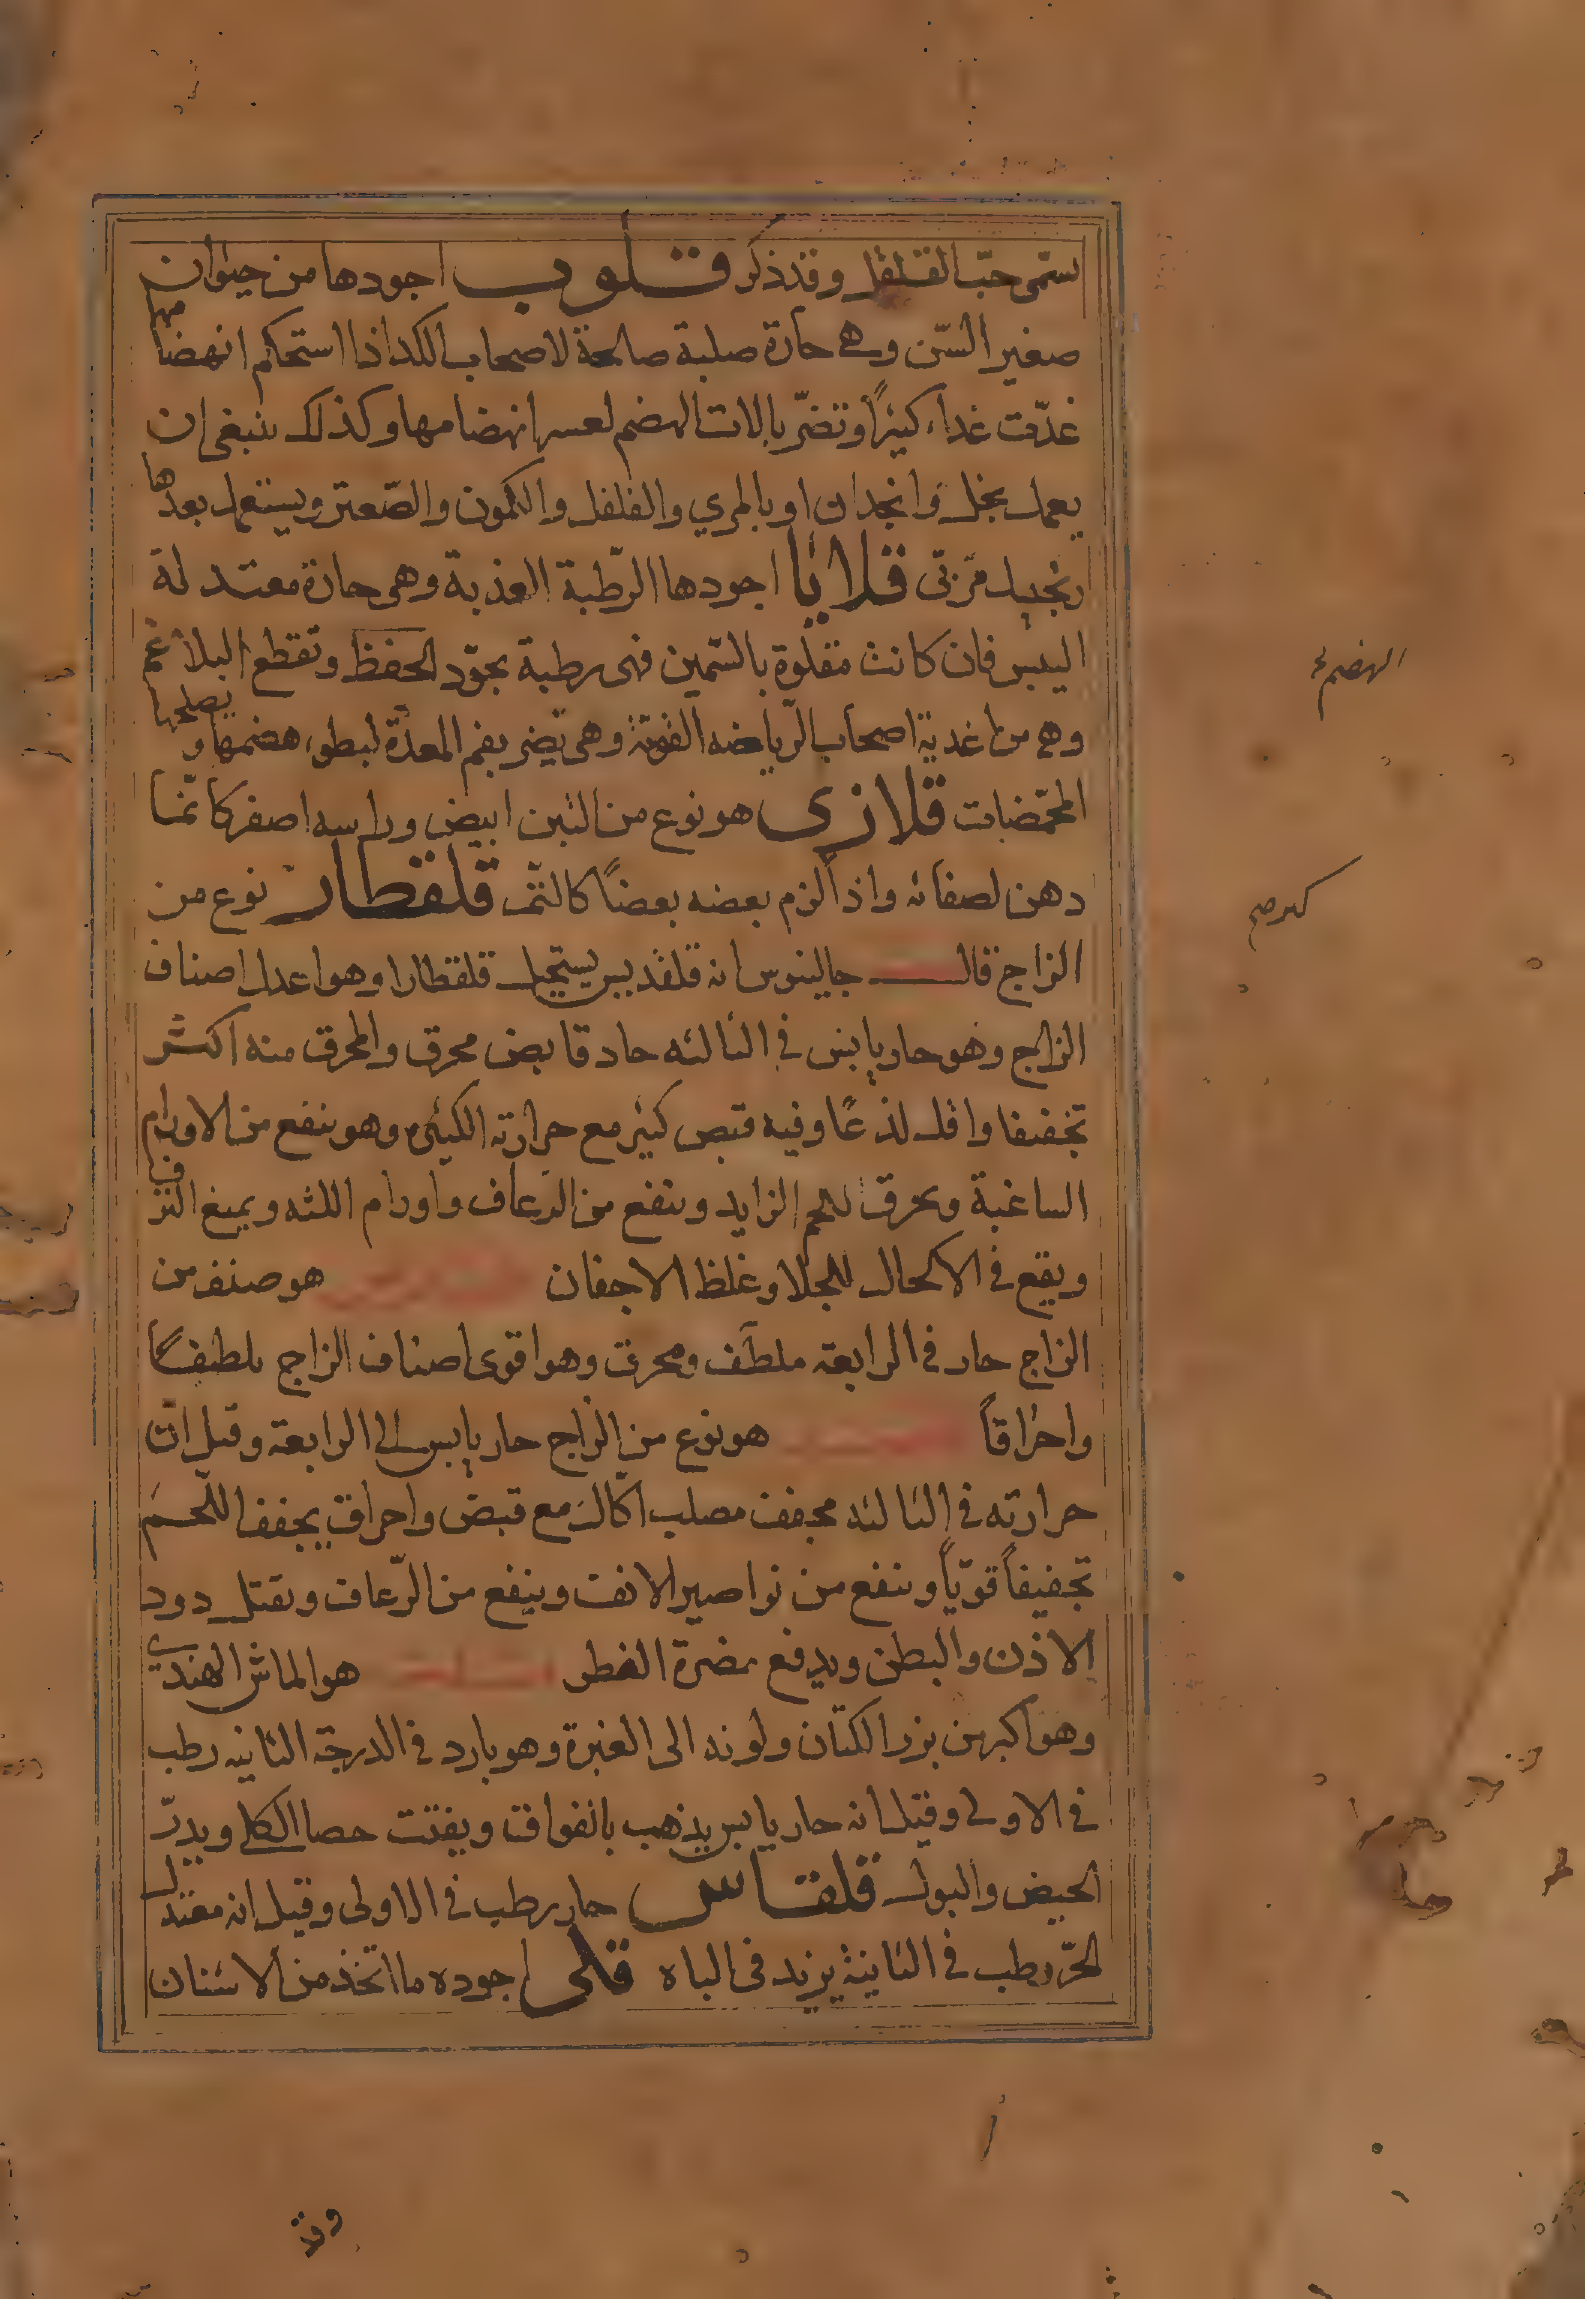 يسمى حب القلقل وقد ذكر قلوب اجودها من حيوان
صغير السن وهي حارة صلبة صالحة لاصحاب الكد اذا استحكم انهضامها
غذت غذاء كثيرا وتضر بالات الهضم لعسر انهضامها وكذلك ينبغي ان
يعمل بخل وانجدان او بالمري والفلفل والكمون والصعتر ويستعمل بعدها
زنجبيل مربى قلايا اجودها الرطبة العذبة وهي حارة معتدلة
اليبس فان كانت مقلوة بالسمين فهى رطبة يجود الحفظ وتقطع البلاغم
وهي من اغذية اصحاب الرياضه القوية وهي تضر بفم المعدة لبطوء هضمها ويصلحها
المحمضات قلازى هو نوع من التين ابيض وراسه اصفر كانما
دهن لصفائه واذا لزم بعضه بعضا كالتمر قلقطار نوع من
الزاج قال جالينوس ان قلقديس يستحيل قلقطارا وهو اعدل اصناف
الزاج وهو حار يابس في الثالثه حاد قابض محرق والمحرق منه اكثر
تجفيفا واقل لذعا وفيه قبض كثير مع حرارته الكثيرة وهو ينفع من الاورام
الساعية ويحرق اللحم الزايد وينفع من الرعاف واورام اللثه ويمنع النزف
ويقع في الاكحال للجلا وغلظ الاجفان هو صنف من
الزاج حار في الرابعة ملطف ومحرق وهو اقوى اصناف الزاج تلطيفا
واحراقا هو نوع من الزاج حار يابس الى الرابعة وقيل ان
حرارته في الثالثه مجفف مصلب اكال مع قبض واحراق يجفف اللحم
تجفيفا قويا وينفع من نواصير الانف وينفع من الرعاف ويقتل دود
الاذن والبطن ويدفع مضرة الفطر هو الماش الهندي
وهو اكبر من بزر الكتان ولونه الى الغبرة وهو بارد في الدرجة الثانيه رطب
في الاولى وقيل انه حار يابس يذهب بالفواق ويفتت حصا الكلى ويدر
الحيض والبول قلقاس حار رطب في الاولى وقيل انه معتدل
الحر رطب في الثانية يزيد في الباه قلى اجوده ما اتخذ من الاشنان